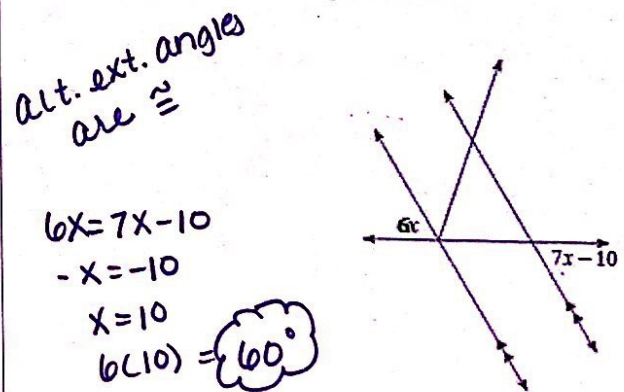 alt. ext. angles
are ≅
6x=7x-10
-x=-10
x=10
6(10) = 60°
6x
7x-10